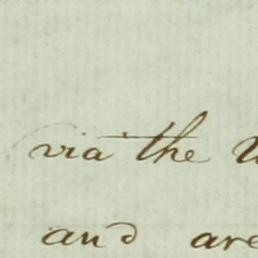 via the
and are